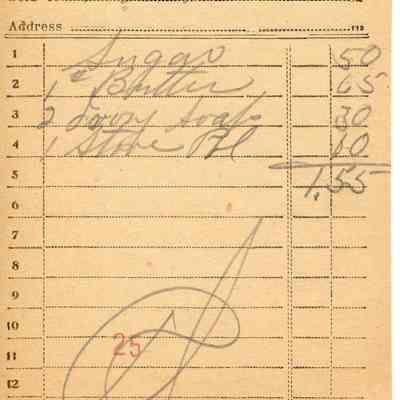 Address
1 Sugar 50
2 1 Butter 65
3 2 Ivory Soap 30
4 1 Stove Pol 10
5 1.55
6
7
8
9
10
25
11
12